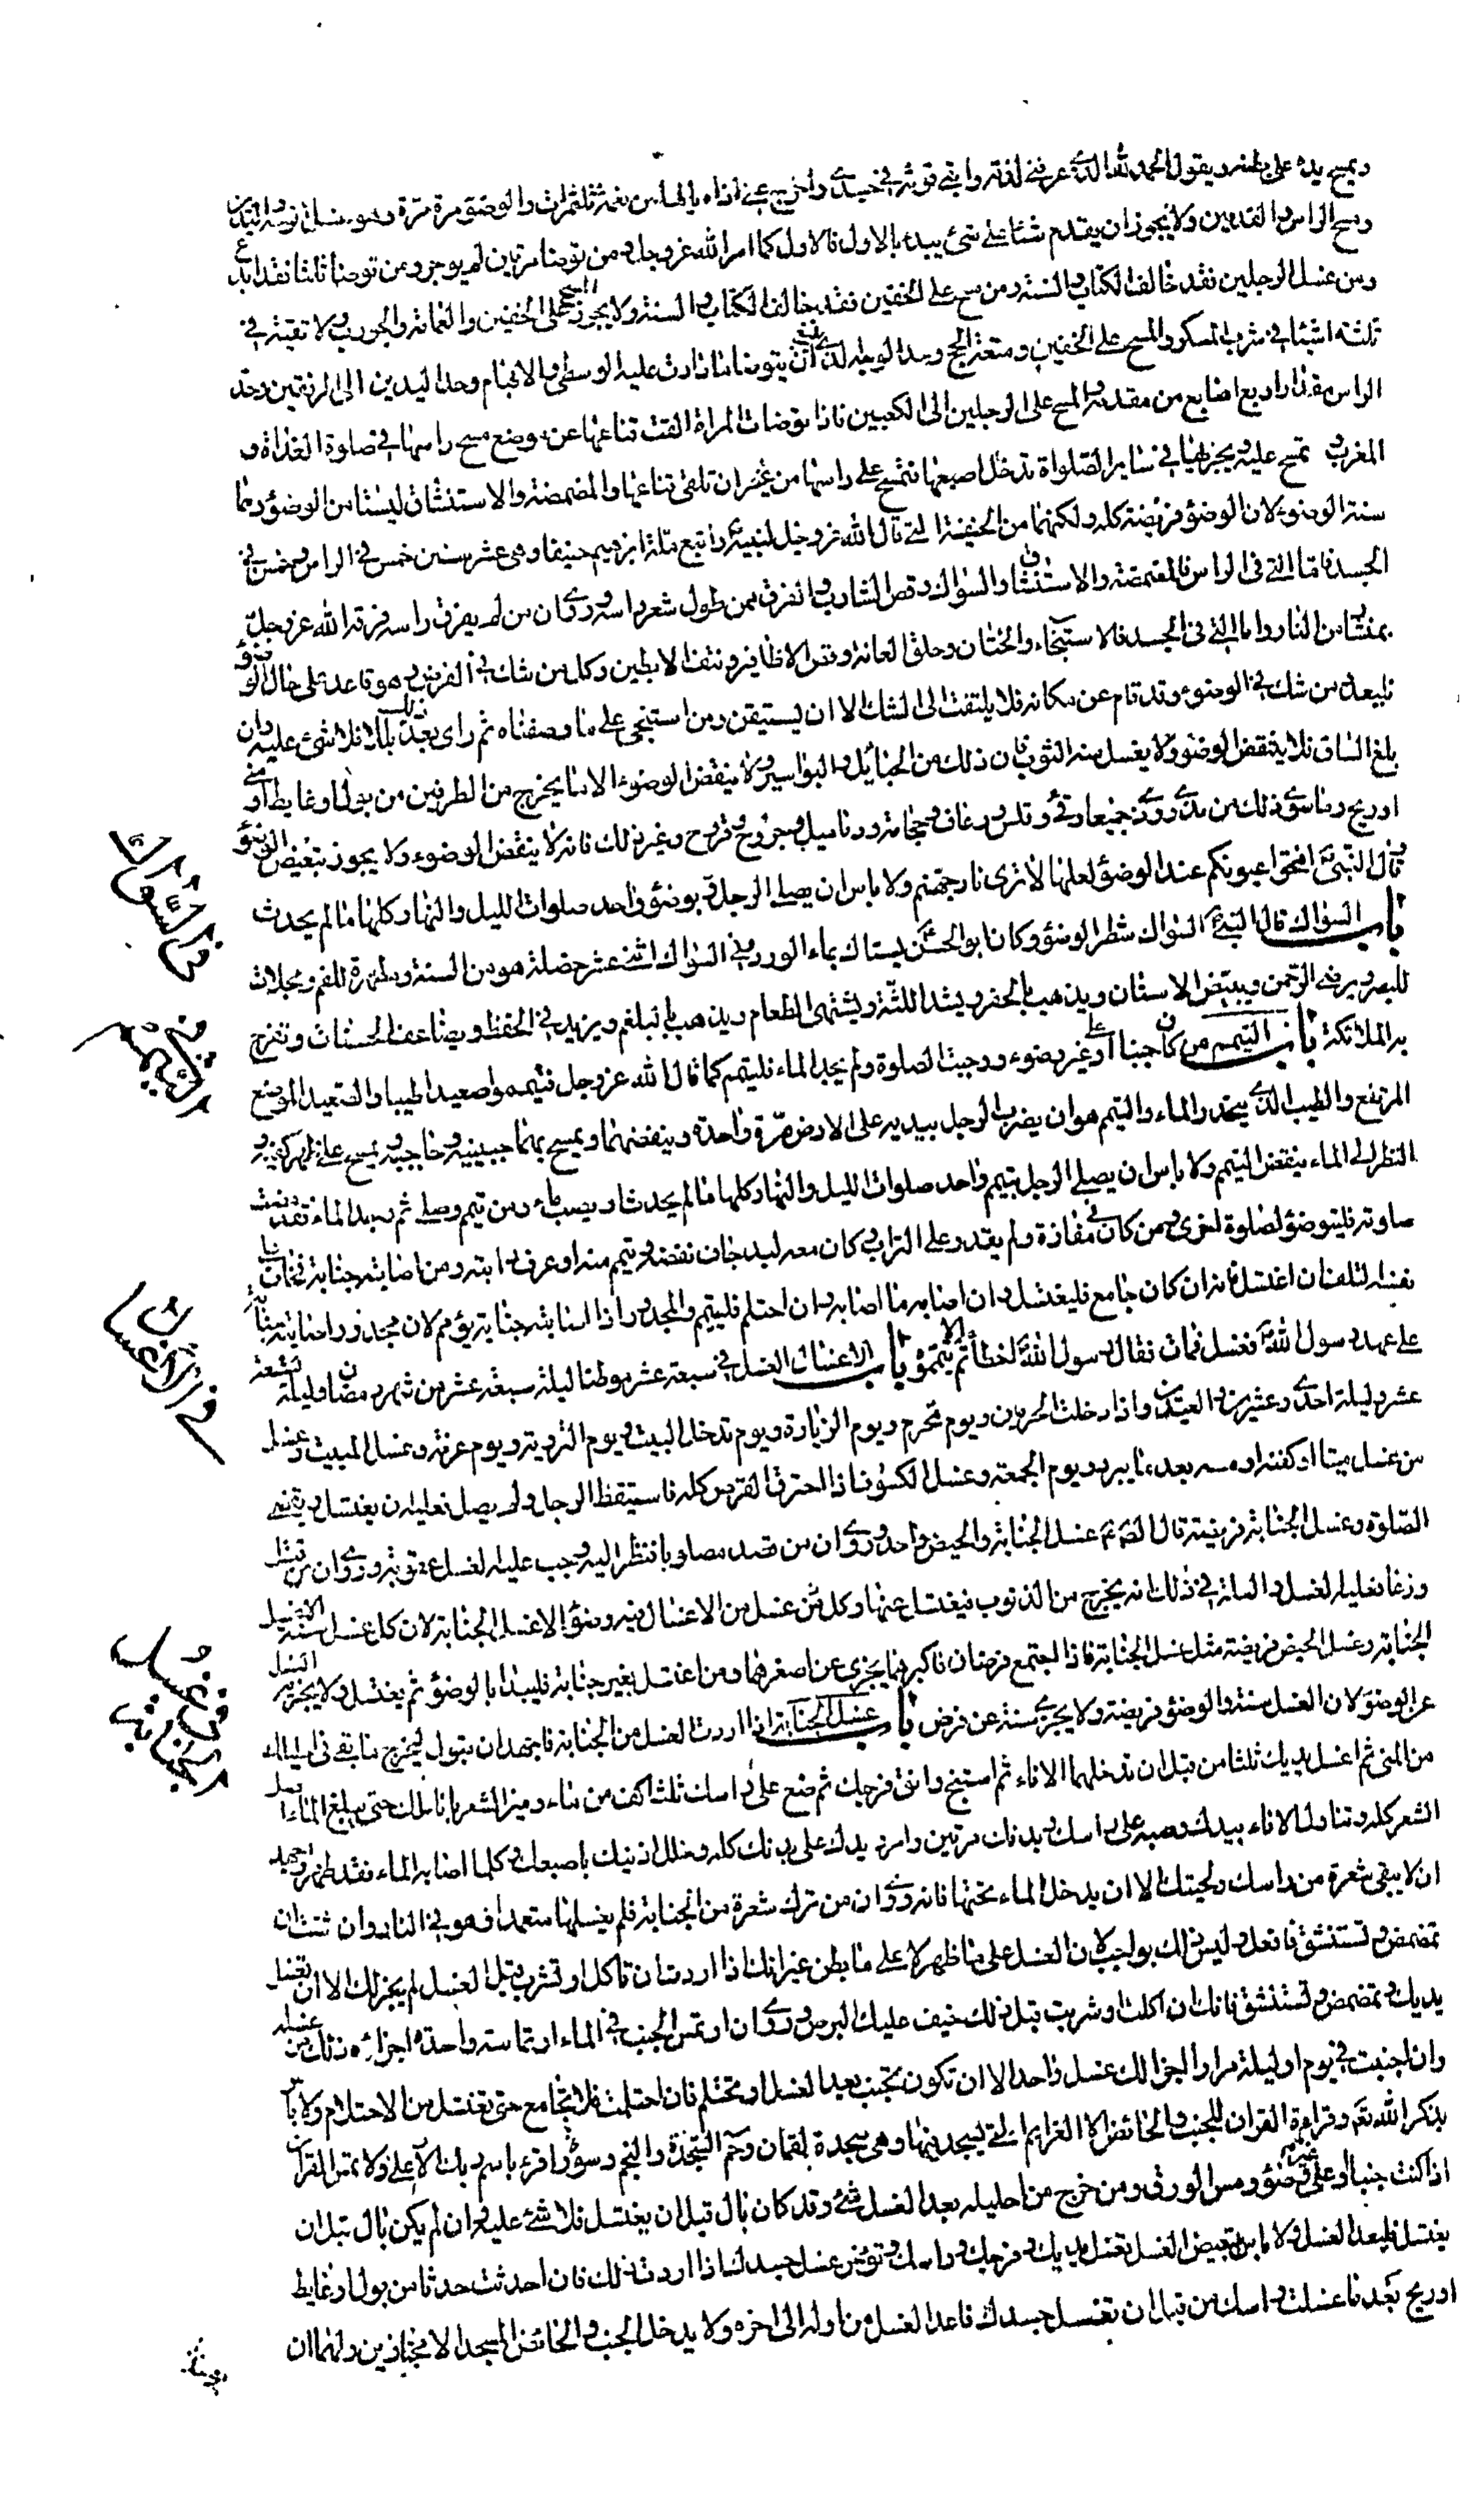 ويمسح يده على بطنه ويقول الحمد لله الذي عرفني لذته وابقى قوته في جسدي واخرج عني اذاه يا لها من نعمة ثلث مرات والوضوء مرة مرة وهو غسل الوجه واليدين
ومسح الراس والقدمين ولا يجوز ان يقدم شيئا على شئ يبدء بالاول فالاول كما امر الله عز وجل ومن توضا مرتين لم يوجر ومن توضا ثلثا فقد ابدع
ومن غسل الرجلين فقد خالف الكتاب والسنة ومن مسح على الخفين فقد خالف الكتاب والسنة ولا يجوز المسح على الخفين والعمامة والجورب ولا تقية في
ثلثة اشياء في شرب المسكر والمسح على الخفين ومتعة الحج وحد الوجه الذي ينبغي ان يتوضا ما دارت عليه الوسطى والابهام وحد اليدين الى المرفقين وحد
الراس مقدار اربع اصابع من مقدمه والمسح على الرجلين الى الكعبين فاذا توضات المراة القت قناعها عن موضع مسح راسها في صلوة الغداة و
المغرب تمسح عليه ويجزيها في ساير الصلواة تدخل اصبعها فتمسح على راسها من غير ان تلقى قناعها والمضمضة والاستنشاق ليسا من الوضوء وهما
سنة الوضوء لان الوضوء فريضة كله ولكنهما من الحنيفة التي قال الله عز وجل لنبيه واتبع ملة ابرهيم حنيفا وهى عشر سنين خمس في الراس وخمس في
الجسد فاما التي فى الراس فالمضمضة والاستنشاق والسواك وقص الشارب والفرق لمن طول شعر راسه وروى ان من لم يفرق راسه فرقه الله عز وجل
بمنشار من النار واما التي فى الجسد فالاستنجاء والختان وحلق العانة وقص الاظافير ونتف الابطين وكل من شك في الفرض وهو قاعد على حال الوضوء
فليعد ومن شك في الوضوء وقد قام عن مكانه فلا يلتفت الى الشك الا ان يستيقن ومن استنجى على ما وصفناه ثم راى بعد ذلك بللا فلا شئ عليه وان
بلغ الساق فلا ينقض الوضوء ولا يغسل منه الثوب فان ذلك من الحبايل والبواسير ولا ينقض الوضوء الا ما يخرج من الطرفين من بول او غايط او مني
او ريح وما سوى ذلك من مذي ووذي جميعا وقئ وقلس ورعاف وحجامة ودماميل وجروح وقروح وغير ذلك فانه لا ينقض الوضوء ولا يجوز تبعيض الوضوء
وقال النبي افتحوا عيونكم عند الوضوء لعلها لا ترى نار جهنم ولا باس ان يصلى الرجل بوضوء واحد صلوات الليل والنهار كلها ما لم يحدث
باب السواك قال النبي السواك شطر الوضوء وكان ابو الحسن يستاك بماء الورد وفي السواك اثنى عشر خصلة هو من السنة ومطهرة للفم ومجلاة
للبصر ويرضى الرحمن ويبيض الاسنان ويذهب بالحفر ويشد اللثة ويشتهى الطعام ويذهب بالبلغم ويزيد في الحفظ ويضاعف الحسنات وتفرح
به الملائكة باب التيمم من كان جنبا او على غير وضوء ووجبت الصلوة ولم يجد الماء فليتيمم كما قال الله عز وجل فتيمموا صعيدا طيبا والصعيد الموضع
المرتفع والطيب الذي ينحدر الماء والتيمم هو ان يضرب الرجل بيديه على الارض مرة واحدة وينفضهما ويمسح بهما جبينيه وحاجبيه ويمسح على ظهر كفيه و
النظر الى الماء ينقض التيمم ولا باس ان يصلى الرجل بتيمم واحد صلوات الليل والنهار كلها ما لم يحدث او يصب ماء ومن تيمم وصلى ثم وجد الماء فقد مضت
صلوته فليتوضؤ لصلوة اخرى ومن كان في مفازة ولم يقدر على التراب وكان معه لبد جاف نفضه وتيمم منه او عرف دابته ومن اصابته جنابة فخاف على
نفسه التلف ان اغتسل فانه ان كان جامع فليغتسل وان اصابه ما اصابه وان احتلم فليتيمم والمجدور اذا اصابته جنابة يؤمم لان مجدورا اصابته جنابة
على عهد رسول الله فغسل فمات فقال رسول الله اخطأتم الا يمتموه باب الاغسال الغسل في سبعة عشر موطنا ليلة سبعة عشر من شهر رمضان وليلة تسعة
عشر وليلة احدى وعشرين والعيدين واذا دخلت الحرمين ويوم تحرم ويوم الزيارة ويوم تدخل البيت ويوم التروية ويوم عرفة وغسل الميت وغسل
من غسل ميتا او كفنه او مسه بعد ما يبرد ويوم الجمعة وغسل الكسوف اذا احترق القرص كله فاستيقظ الرجل ولم يصل فعليه ان يغتسل ويقضى
الصلوة وغسل الجنابة فريضة قال الصم غسل الجنابة والحيض واحد وروى ان من قصد مصلوبا فنظر اليه وجب عليه الغسل عقوبة وروى ان من قتل
وزغا فعليه الغسل والعلة في ذلك انه يخرج من الذنوب فيغتسل عنها وكل غسل من الاغسال فيه وضوء الا غسل الجنابة لان كل غسل سنة الا غسل
الجنابة وغسل الحيض فريضة مثل غسل الجنابة فاذا اجتمع فرضان فاكبرهما يجزى عن اصغرهما ومن اغتسل بغير جنابة فليبدا بالوضوء ثم يغتسل ولا يجزيه الغسل
عن الوضوء لان الغسل سنة والوضوء فريضة ولا يجزي سنة عن فرض باب غسل الجنابة اذا اردت الغسل من الجنابة فاجهد ان تبول ليخرج ما بقى فى احليلك
من المنى ثم اغسل يديك ثلثا من قبل ان تدخلهما الاناء ثم استنج وانق فرجك ثم ضع على راسك ثلث اكف من ماء وميز الشعر باناملك حتى يبلغ الماء اصل
الشعر كله وتناول الاناء بيدك وصبه على راسك وبدنك مرتين وامرر يدك على بدنك كله وخلل اذنيك باصبعك وكلما اصابه الماء فقد طهر واجهد
ان لا يبقى شعرة من راسك ولحيتك الا ان يدخل الماء تحتها فانه روى ان من ترك شعرة من الجنابة فلم يغسلها متعمدا فهو في النار وان شئت ان
تمضمض وتستنشق فافعل وليس ذلك بواجب لان الغسل على ما ظهر لا على ما بطن غير انك اذا اردت ان تاكل او تشرب قبل الغسل لم يجز لك الا ان تغسل
يديك وتمضمض وتستنشق فانك ان اكلت او شربت قبل ذلك خيف عليك البرص وروى ان ارتمس الجنب في الماء ارتماسة واحدة اجزاه ذلك من غسله
وان اجنبت في يوم او ليلة مرارا اجزالك غسل واحد الا ان تكون تجنب بعد الغسل او تحتلم فان احتلمت فلا تجامع حتى تغتسل من الاحتلام ولا باس
بذكر الله تع وقراءة القران للجنب والحائض الا العزايم التي يسجد فيها وهى سجدة لقمان وحم السجدة والنجم وسورة اقرء باسم ربك الاعلى ولا تمس القران
اذا كنت جنبا او على غير وضوء ومس الورق ومن خرج من احليله بعد الغسل شئ وقد كان بال قبل ان يغتسل فلا شئ عليه وان لم يكن بال قبل ان
يغتسل فليعد الغسل ولا باس بتبعيض الغسل تغسل يديك وفرجك وراسك وتؤخر غسل جسدك اذا اردت ذلك فان احدثت حدثا من بول او غايط
او ريح بعد ما غسلت راسك من قبل ان تغسل جسدك فاعد الغسل من اوله الى اخره ولا يدخل الجنب والحائض المسجد الا مجتازين ولهما ان
في السواك
في التيمم
في الاغسال
في غسل الجنابة